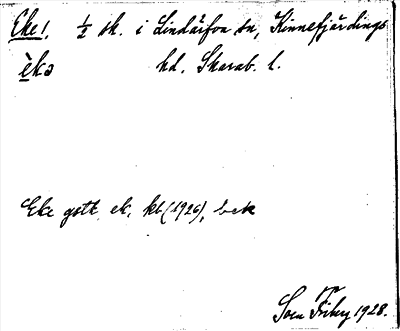 Eke 1. ½ sk. i Lindärfva sn, Kinnefjärdings
èkə hd. Skarab. l.
Eke gott ek. kb (1926), bek
Sven Friby 1928.